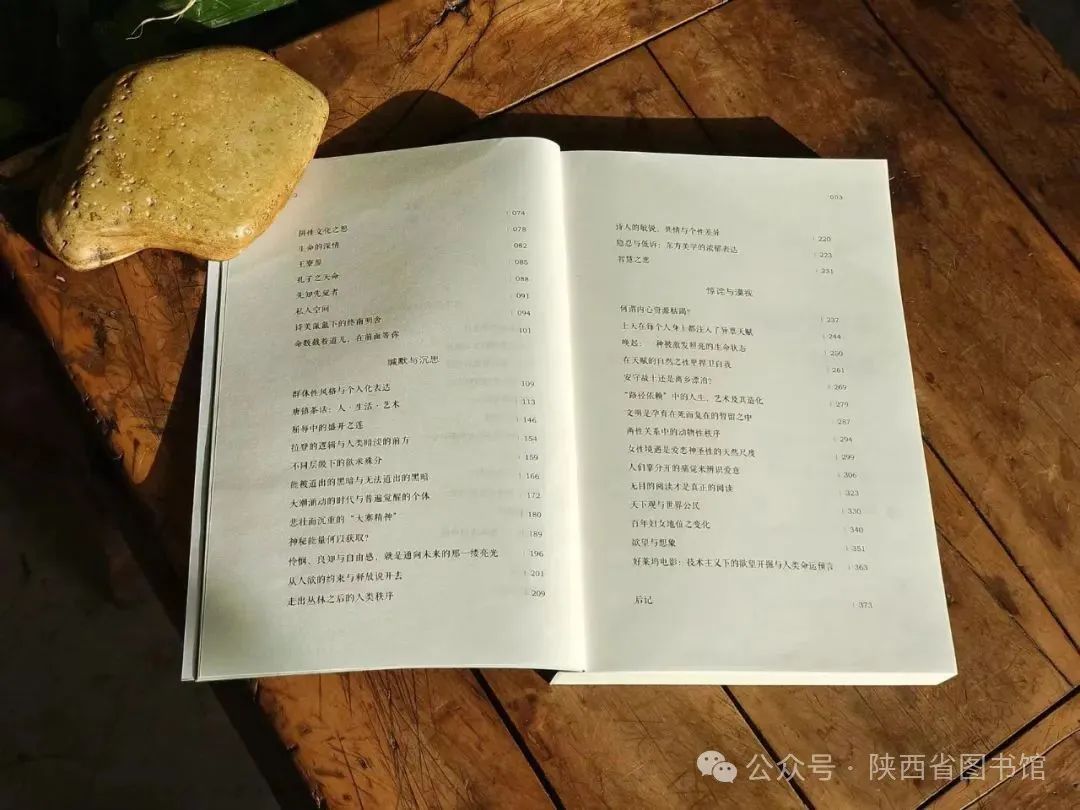 阴性文化之思 | 074
生命的深情 | 078
王寮墓 | 082
孔子之天命 | 085
先知先觉者 | 088
私人空间 | 091
诗美氤氲下的终南别舍 | 094
命数戴着道儿，在前面等你 101
缄默与沉思
群体性风格与个人化表达 109
唐镇茶话：人·生活·艺术 | 113
屈辱中的盛开之莲 | 146
拉登的逻辑与人类暗淡的前方 | 154
不同层级下的欲求殊分 | 159
能被道出的黑暗与无法道出的黑暗 | 166
大潮涌动的时代与普遍觉醒的个体 | 172
悲壮而沉重的“大寒精神” | 180
神秘能量何以获取？ | 189
怜悯、良知与自由感，就是通向未来的那一缕亮光 | 196
从人欲的约束与释放说开去 | 201
走出丛林之后的人类秩序 | 209
003
诗人的敏锐、共情与个性差异 | 220
隐忍与低诉：东方美学的浓郁表达 | 223
智慧之悲 | 231
惊诧与凝视
何谓内心资源枯竭？ | 237
上天在每个人身上都注入了异禀天赋 | 244
唤起：一种被激发照亮的生命状态 | 250
在天赋的自然之性里捍卫自我 | 261
安守故土还是离乡漂泊？ | 269
“路径依赖”中的人生、艺术及其造化 | 279
文明是孕育在死而复在的暂留之中 | 287
两性关系中的动物性秩序 | 294
女性境遇是爱恋神圣性的天然尺度 | 299
人们靠分开的痛觉来辨识爱意 | 306
无目的阅读才是真正的阅读 | 323
天下观与世界公民 | 330
百年妇女地位之变化 | 340
欲望与想象 | 351
好莱坞电影：技术主义下的欲望开掘与人类命运预言 | 363
后记 | 373
公众号·陕西省图书馆